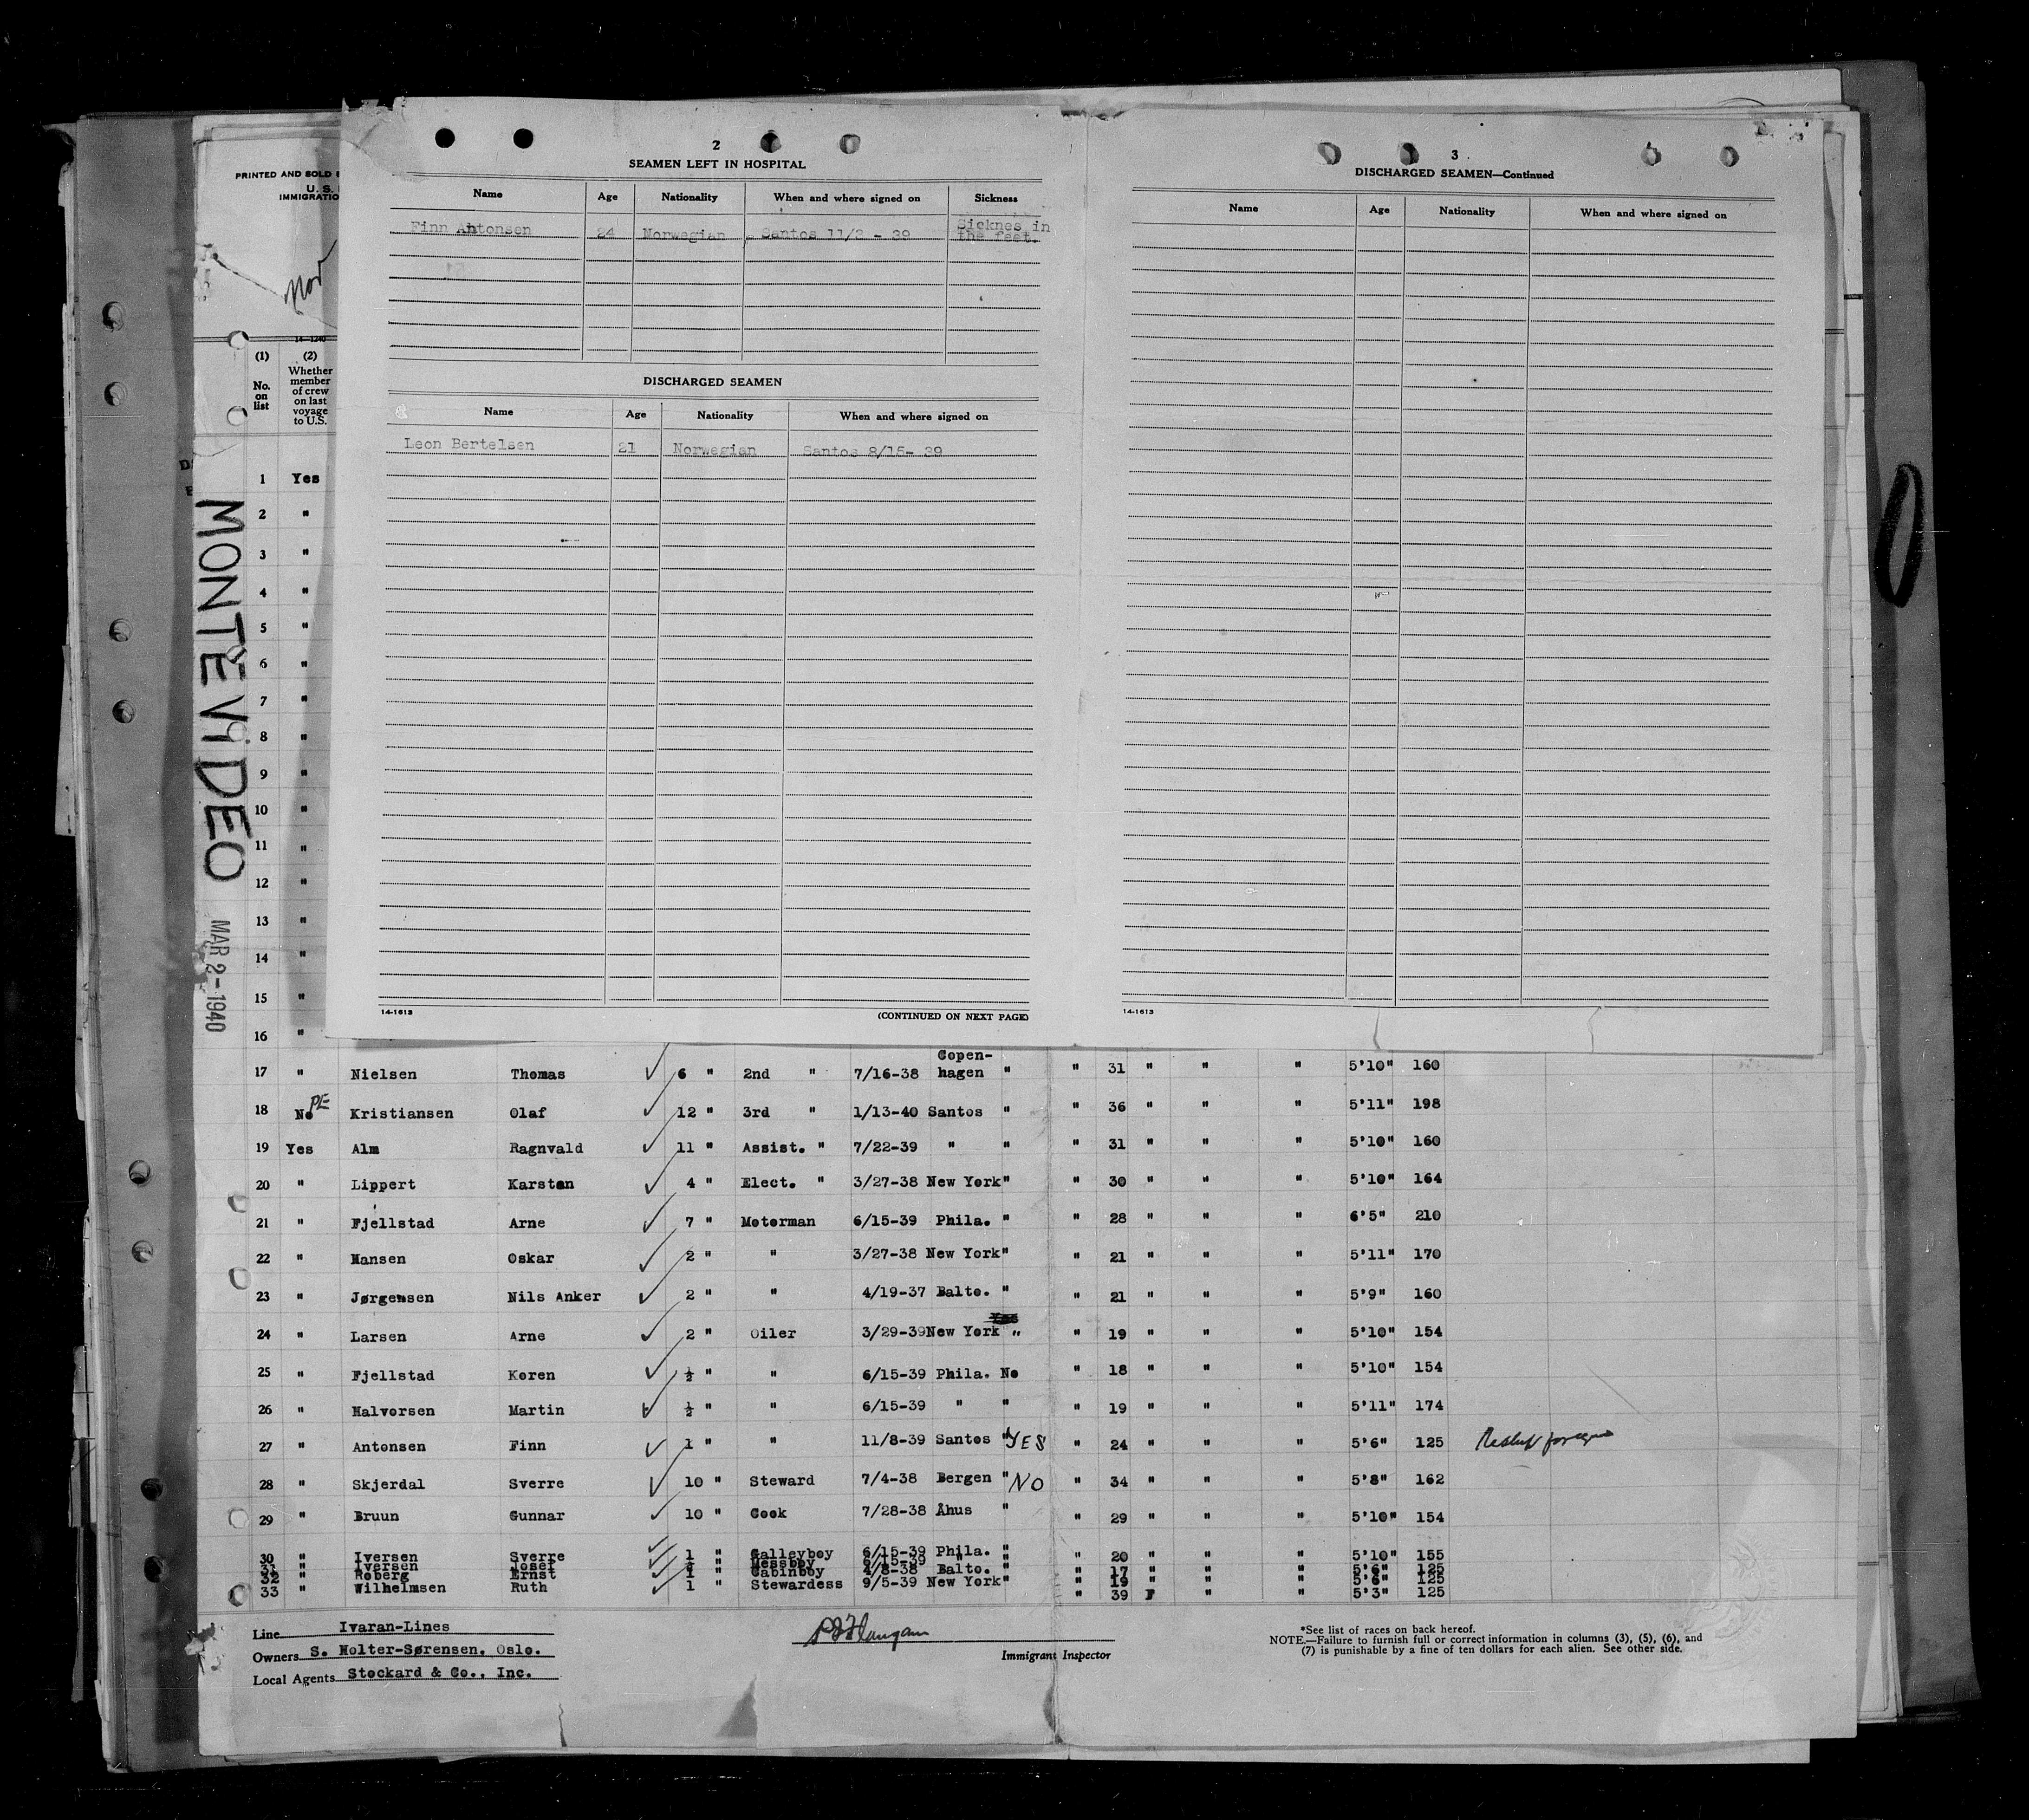 2
SEAMEN LEFT IN HOSPITAL
Name Age Nationality When and where signed on Sickness
Finn Antonsen 24 Norwegian Santos 11/3 - 39 Sicknes in the feet.
DISCHARGED SEAMEN
Name Age Nationality When and where signed on
Leon Bertelsen 21 Norwegian Santos 8/15- 39
14-1613
(CONTINUED ON NEXT PAGE)
3
DISCHARGED SEAMEN—Continued
Name Age Nationality When and where signed on
14-1613
PRINTED AND SOLD
U. S.
IMMIGRATIO
Nor
14-1240
(1) (2)
No. on list
Whether member of crew on last voyage to U.S.
MONTEVIDEO
MAR 2-1940
1 Yes
2 "
3 "
4 "
5 "
6 "
7 "
8 "
9 "
10 "
11 "
12 "
13 "
14 "
15 "
16 "
17 " Nielsen Thomas 6 " 2nd " 7/16-38 Copen-hagen " " 31 " " " 5'10" 160
18 No PE Kristiansen Olaf 12 " 3rd " 1/13-40 Santos " " 36 " " " 5'11" 198
19 Yes Alm Ragnvald 11 " Assist. " 7/22-39 " " " 31 " " " 5'10" 160
20 " Lippert Karsten 4 " Elect. " 3/27-38 New York " " 30 " " " 5'10" 164
21 " Fjellstad Arne 7 " Motorman 6/15-39 Phila. " " 28 " " " 6'5" 210
22 " Hansen Oskar 2 " " 3/27-38 New York " " 21 " " " 5'11" 170
23 " Jørgensen Nils Anker 2 " " 4/19-37 Balto. " " 21 " " " 5'9" 160
24 " Larsen Arne 2 " Oiler 3/29-39 New York " " 19 " " " 5'10" 154
25 " Fjellstad Koren ½ " " 6/15-39 Phila. No " 18 " " " 5'10" 154
26 " Halvorsen Martin ½ " " 6/15-39 " " " 19 " " " 5'11" 174
27 " Antonsen Finn 1 " " 11/8-39 Santos " YES " 24 " " " 5'6" 125
28 " Skjerdal Sverre 10 " Steward 7/4-38 Bergen " NO " 34 " " " 5'8" 162
29 " Bruun Gunnar 10 " Cook 7/28-38 Åhus " " 29 " " " 5'10" 154
30 " Iversen Sverre 1 " Galleyboy 6/15-39 Phila. " " 20 " " " 5'10" 155
31 " Iversen Josef ½ " Messboy 6/15-39 " " " 17 " " " 5'6" 125
32 " Roberg Ernst 1 " Cabinboy 4/8-38 Balto. " " 19 " " " 5'6" 125
33 " Wilhelmsen Ruth 1 " Stewardess 9/5-39 New York " " 39 F " " 5'3" 125
Line Ivaran-Lines
Owners S. Holter-Sørensen, Oslo.
Local Agents Stockard & Co., Inc.
Immigrant Inspector
*See list of races on back hereof.
NOTE.—Failure to furnish full or correct information in columns (3), (5), (6), and
(7) is punishable by a fine of ten dollars for each alien. See other side.